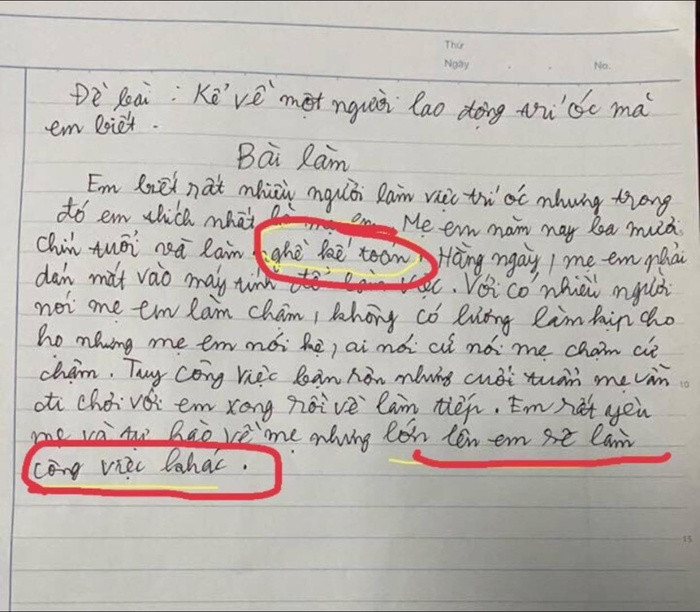 Thứ
Ngày No.
Đề bài : Kể về một người lao động trí óc mà
em biết .
Bài làm
Em biết rất nhiều người làm việc trí óc nhưng trong
đó em thích nhất là mẹ em. Mẹ em năm nay ba mươi
chín tuổi và làm nghề kế toán. Hằng ngày, mẹ em phải
dán mắt vào máy tính để làm việc. Với có nhiều người
nói mẹ em làm chậm, không có lương làm kịp cho
họ nhưng mẹ em nói kệ, ai nói cứ nói mẹ chậm cứ
chậm. Tuy công việc bận rộn nhưng cuối tuần mẹ vẫn
đi chơi với em xong rồi về làm tiếp. Em rất yêu
mẹ và tự hào về mẹ nhưng lớn lên em sẽ làm
công việc khác.
10
15